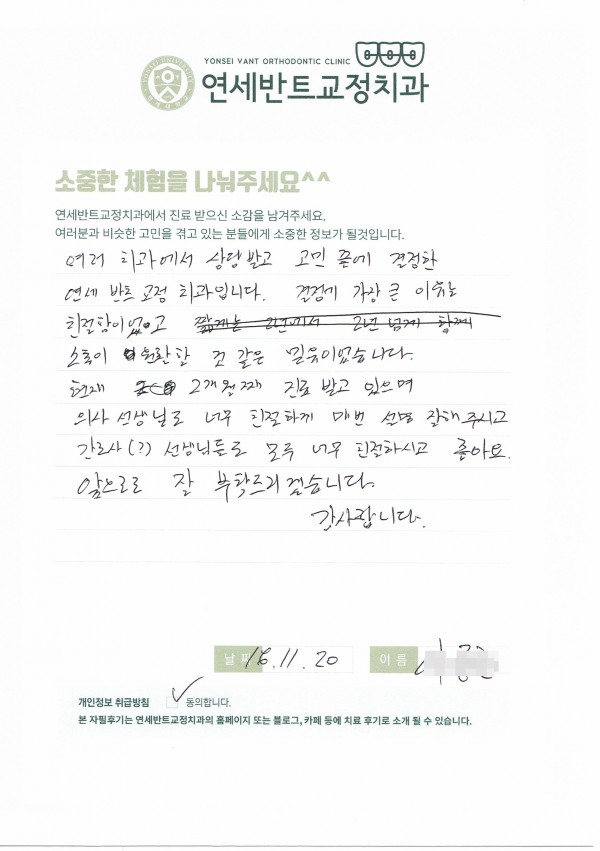 YONSEI VANT ORTHODONTIC CLINIC
연세반트교정치과
소중한 체험을 나눠주세요^^
연세반트교정치과에서 진료 받으신 소감을 남겨주세요.
여러분과 비슷한 고민을 겪고 있는 분들에게 소중한 정보가 될것입니다.
여러 치과에서 상담받고 고민 끝에 결정한
연세 반트 교정 치과입니다. 결정에 가장 큰 이유는
친절함이었고 짧게는 2년에서 2년 넘게 함께
소통이 원활할 것 같은 믿음이었습니다.
현재 2개월째 진료 받고 있으며
의사 선생님도 너무 친절하게 매번 설명 잘해주시고
간호사(?) 선생님들도 모두 너무 친절하시고 좋아요.
앞으로도 잘 부탁드리겠습니다.
감사합니다.
날짜 16.11.20 이름
개인정보 취급방침 동의합니다.
본 자필후기는 연세반트교정치과의 홈페이지 또는 블로그, 카페 등에 치료 후기로 소개 될 수 있습니다.